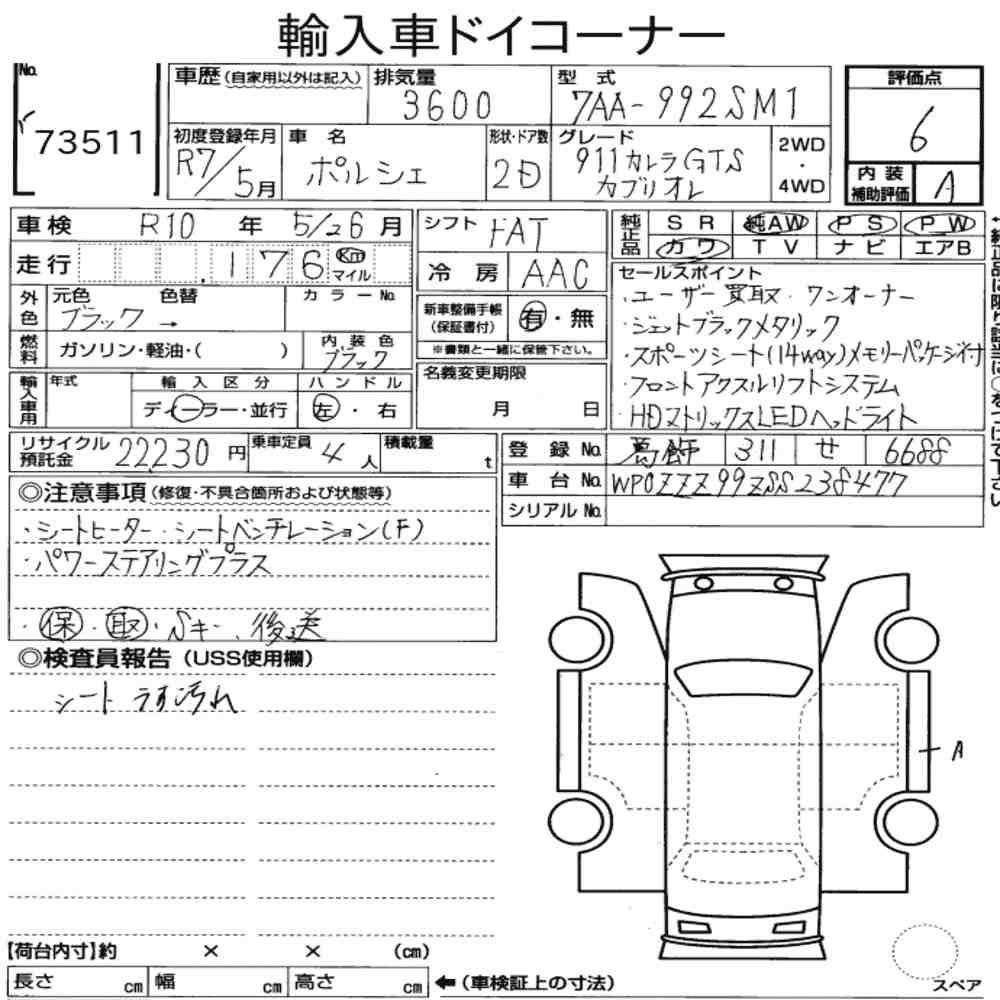 輸入車ドイコーナー
No. 73511
車歴 (自家用以外は記入)
排気量 3600
型式 7AA-992SM1
評価点 6
初度登録年月 R7/5月
車名 ポルシェ
形状・ドア数 2D
グレード 911カレラGTS カブリオレ
2WD・4WD
内装補助評価 A
車検 R10年 5/26月
シフト FAT
純正品 SR 純AW PS PW
カワ TV ナビ エアB
走行 .176 Km マイル
冷房 AAC
セールスポイント
・ユーザー買取・ワンオーナー
・ジェットブラックメタリック
・スポーツシート(14way)メモリーパッケージ付
・フロントアクスルリフトシステム
・HDマトリックスLEDヘッドライト
外色 元色 ブラック → 色替 カラーNo.
新車整備手帳(保証書付) 有・無
※書類と一緒に保管下さい。
燃料 ガソリン・軽油・( )
内装色 ブラック
名義変更期限 月 日
輸入車用 年式
輸入区分 ディーラー・並行
ハンドル 左・右
リサイクル預託金 22,230円
乗車定員 4人
積載量 t
登録No. 葛飾 311 せ 6688
車台No. WP0ZZZ99ZSS238477
シリアルNo.
◎注意事項 (修復・不具合箇所および状態等)
・シートヒーター・シートベンチレーション(F)
・パワーステアリングプラス
・保・取・Sキー、後送
◎検査員報告 (USS使用欄)
シート うす汚れ
A
【荷台内寸】約 × × (cm)
長さ cm 幅 cm 高さ cm ←(車検証上の寸法)
スペア